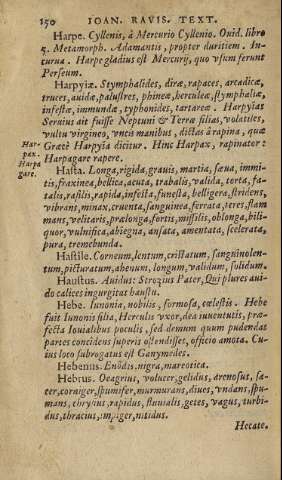 150 IOAN. RAVIS. TEXT.
Harpe. Cyllenis, à Mercurio Cyllenio. Ouid. libro
5. Metamorph. Adamantis, propter duritiem. In-
curua. Harpe gladius est Mercurij, quo vsum ferunt
Perseum.
Harpyiæ. Stymphalides, diræ, rapaces, arcadicæ,
truces, auidæ, palustres, phineæ, herculeæ, stymphaliæ,
infestæ, immundæ, typhonides, tartareæ. Harpyias
Seruius ait fuisse Neptuni & Terræ filias, volatiles,
vultu virgineo, vncis manibus, dictas à rapina, quæ
Græcè Harpyia dicitur. Hinc Harpax, rapinator:
Harpagare rapere.
Har-
pax.
Harpa
gare.
Hasta. Longa, rigida, grauis, martia, sæua, immi-
tis, fraxinea, bellica, acuta, trabalis, valida, torta, fa-
talis, rasilis, rapida, infesta, funesta, belligera, stridens,
vibrans, minax, cruenta, sanguinea, ferrata, teres, flam
mans, velitaris, prælonga, fortis, missilis, oblonga, bili-
quor, vulnifica, abiegna, ansata, amentata, scelerata,
pura, tremebunda.
Hastile. Corneum, lentum, cristatum, sanguinolen-
tum, picturatum, ahenum, longum, validum, solidum.
Haustus. Auidus: Strozius Pater, Qui plures aui-
do calices ingurgitat haustu.
Hebe. Iunonia, nobilis, formosa, cœlestis. Hebe
fuit Iunonis filia, Herculis vxor, dea iuuentutis, præ-
fecta Iouialibus poculis, sed demum quum pudendat
partes concidens superis ostendisset, officio amota. Cu-
ius loco subrogatus est Ganymedes.
Hebenus. Enodis, nigra, mareotica.
Hebrus. Oeagrius, volucer, gelidus, arenosus, sa-
cer, corniger, spumifer, murmurans, diues, vndans, spu-
mans, rapidus, fluuialis, getes, vagus, turbi-
dus, thracius, impiger, nitidus.
Hecate.